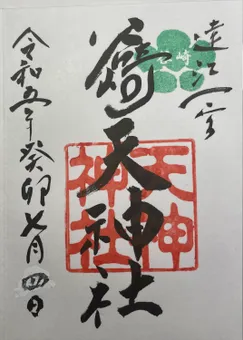 遠江一宮
天神社
天神
神社
令和五年癸卯七月四日